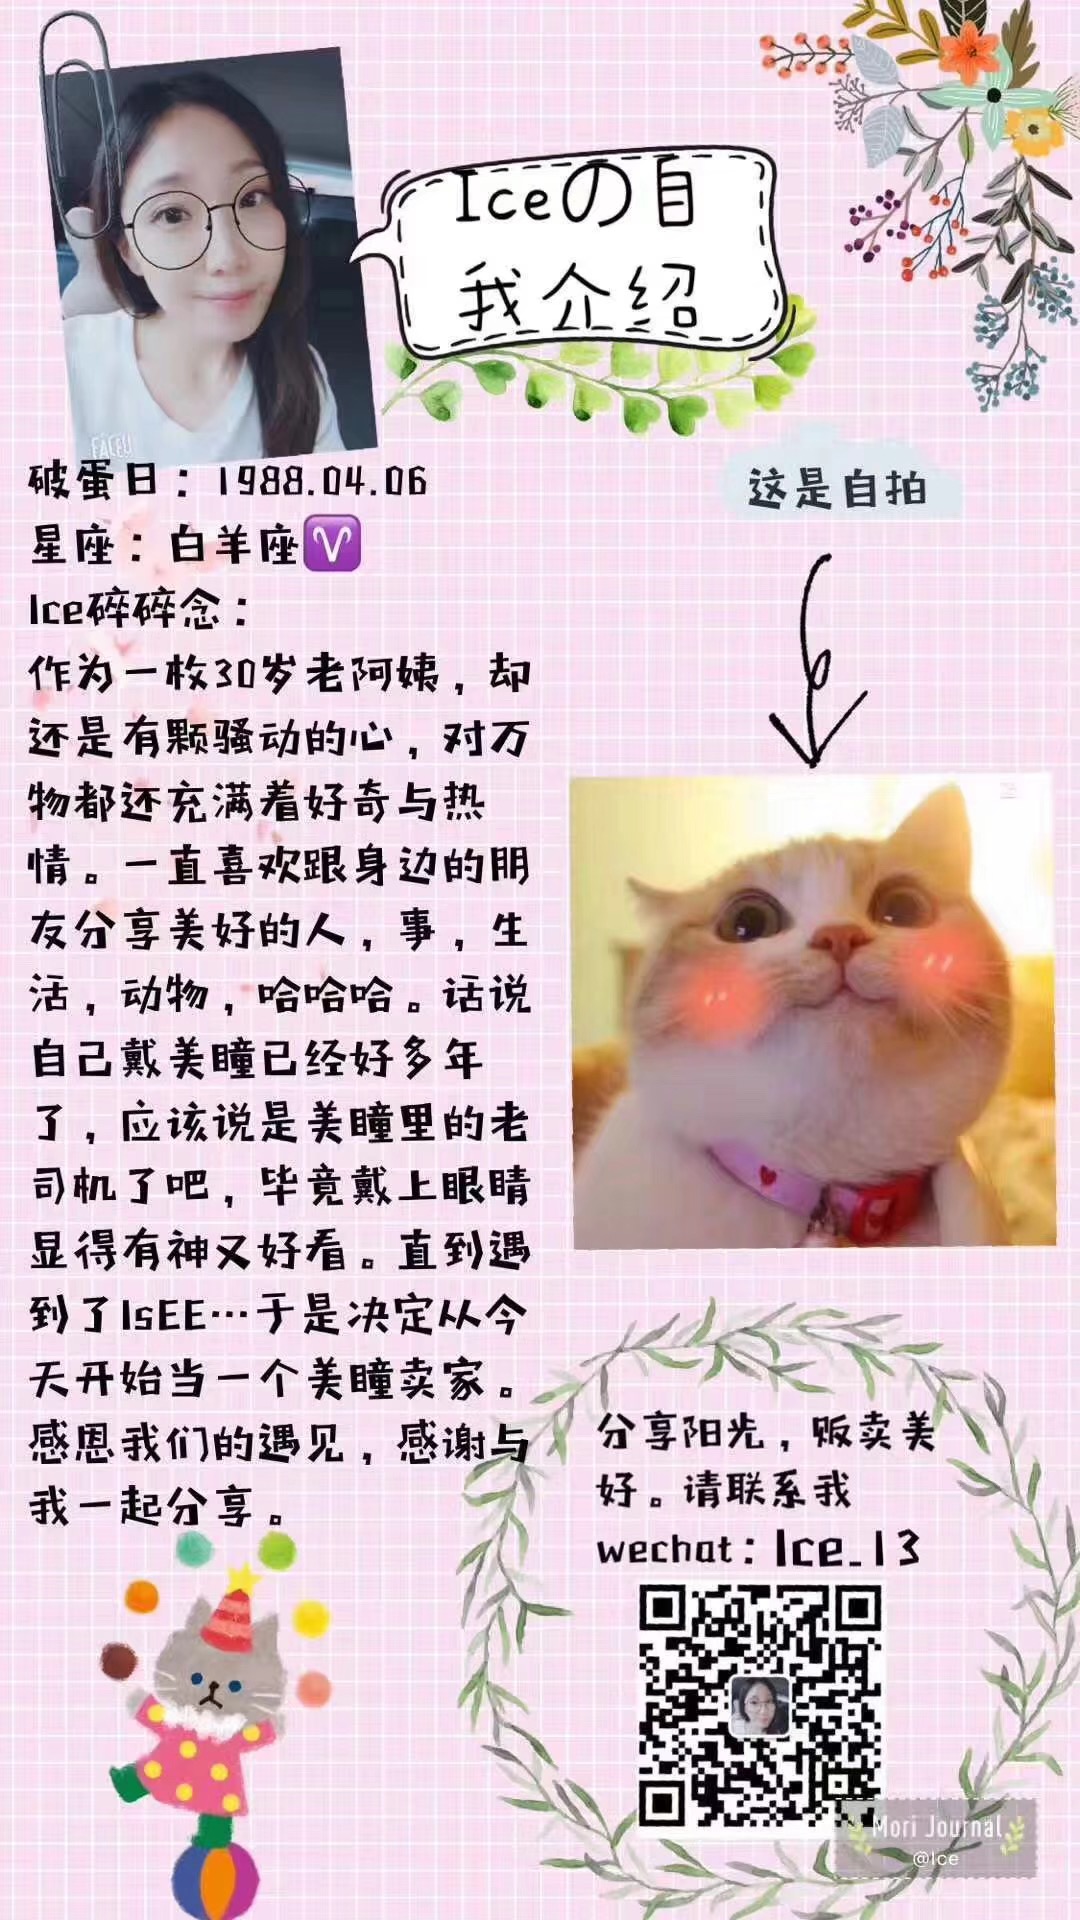 Iceの自
我介绍
FACEU
破蛋日：1988.04.06
星座：白羊座♈
Ice碎碎念：
作为一枚30岁老阿姨，却
还是有颗骚动的心，对万
物都还充满着好奇与热
情。一直喜欢跟身边的朋
友分享美好的人，事，生
活，动物，哈哈哈。话说
自己戴美瞳已经好多年
了，应该说是美瞳里的老
司机了吧，毕竟戴上眼睛
显得有神又好看。直到遇
到了IsEE…于是决定从今
天开始当一个美瞳卖家。
感恩我们的遇见，感谢与
我一起分享。
这是自拍
分享阳光，贩卖美
好。请联系我
wechat：Ice_13
Mori Journal
@Ice